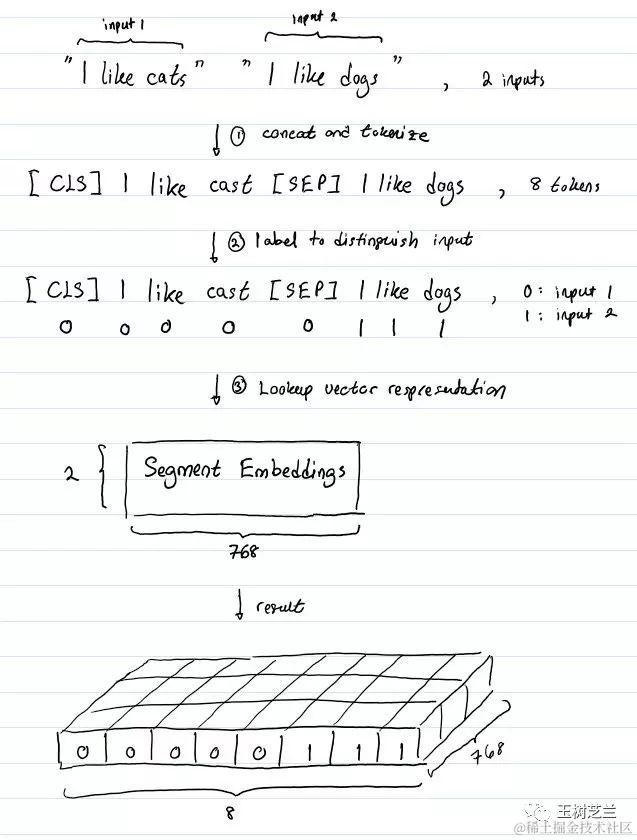 input 1 input 2
"I like cats" "I like dogs" , 2 inputs
① concat and tokenize
[CLS] I like cast [SEP] I like dogs , 8 tokens
② label to distinguish input
[CLS] I like cast [SEP] I like dogs , 0: input 1
0 0 0 0 0 1 1 1 1: input 2
③ Lookup vector respresentation
2 { Segment Embeddings
768
result
0 0 0 0 0 1 1 1
768
8
玉树芝兰
@稀土掘金技术社区